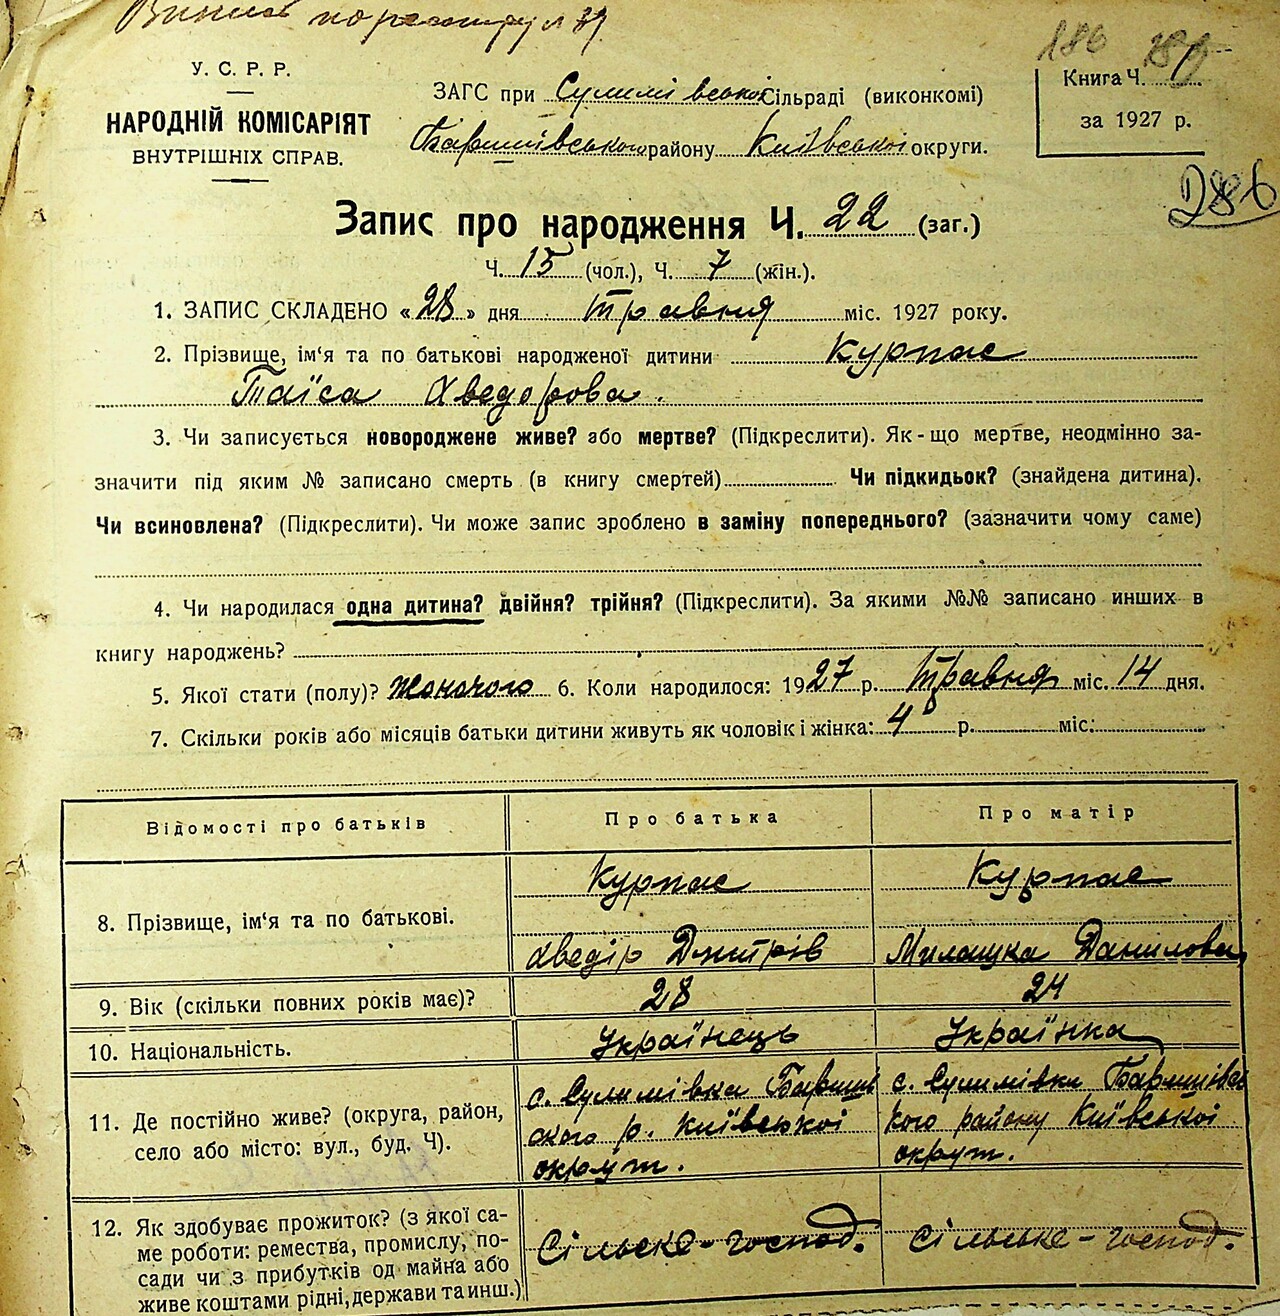 Випис по реєстру л 79
186
У. С. Р. Р.
НАРОДНІЙ КОМІСАРІЯТ
ВНУТРІШНІХ СПРАВ.
ЗАГС при Сулимівської Сільраді (виконкомі)
Баришівського району Київської округи.
Книга Ч.
за 1927 р.
286
Запис про народження Ч. 22 (заг.)
Ч. 15 (чол.), Ч. 7 (жін.).
1. ЗАПИС СКЛАДЕНО «28» дня травня міс. 1927 року.
2. Прізвище, ім‘я та по батькові народженої дитини Курпас
Таїса Хведорова.
3. Чи записується новороджене живе? або мертве? (Підкреслити). Як-що мертве, неодмінно за-
значити під яким № записано смерть (в книгу смертей) Чи підкидьок? (знайдена дитина).
Чи всиновлена? (Підкреслити). Чи може запис зроблено в заміну попереднього? (зазначити чому саме)
4. Чи народилася одна дитина? двійня? трійня? (Підкреслити). За якими №№ записано инших в
книгу народжень?
5. Якої стати (полу)? Жоночого 6. Коли народилося: 1927 р. Травня міс. 14 дня.
7. Скільки років або місяців батьки дитини живуть як чоловік і жінка: 4 р. міс.
Відомості про батьків Про батька Про матір
8. Прізвище, ім‘я та по батькові. Курпас Хведір Дмитрів Курпас Милашка Данилова
9. Вік (скільки повних років має)? 28 24
10. Національність. Українець Українка
11. Де постійно живе? (округа, район,
село або місто: вул., буд. Ч).
с. Сулимівка Баришівського р. Київської
округи.
с. Сулимівка Баришівсь
кого району Київської
округи.
12. Як здобуває прожиток? (з якої са-
ме роботи: ремества, промислу, по-
сади чи з прибутків од майна або
живе коштами рідні, держави та инш.)
Сільське-господ.
Сільське-господ.